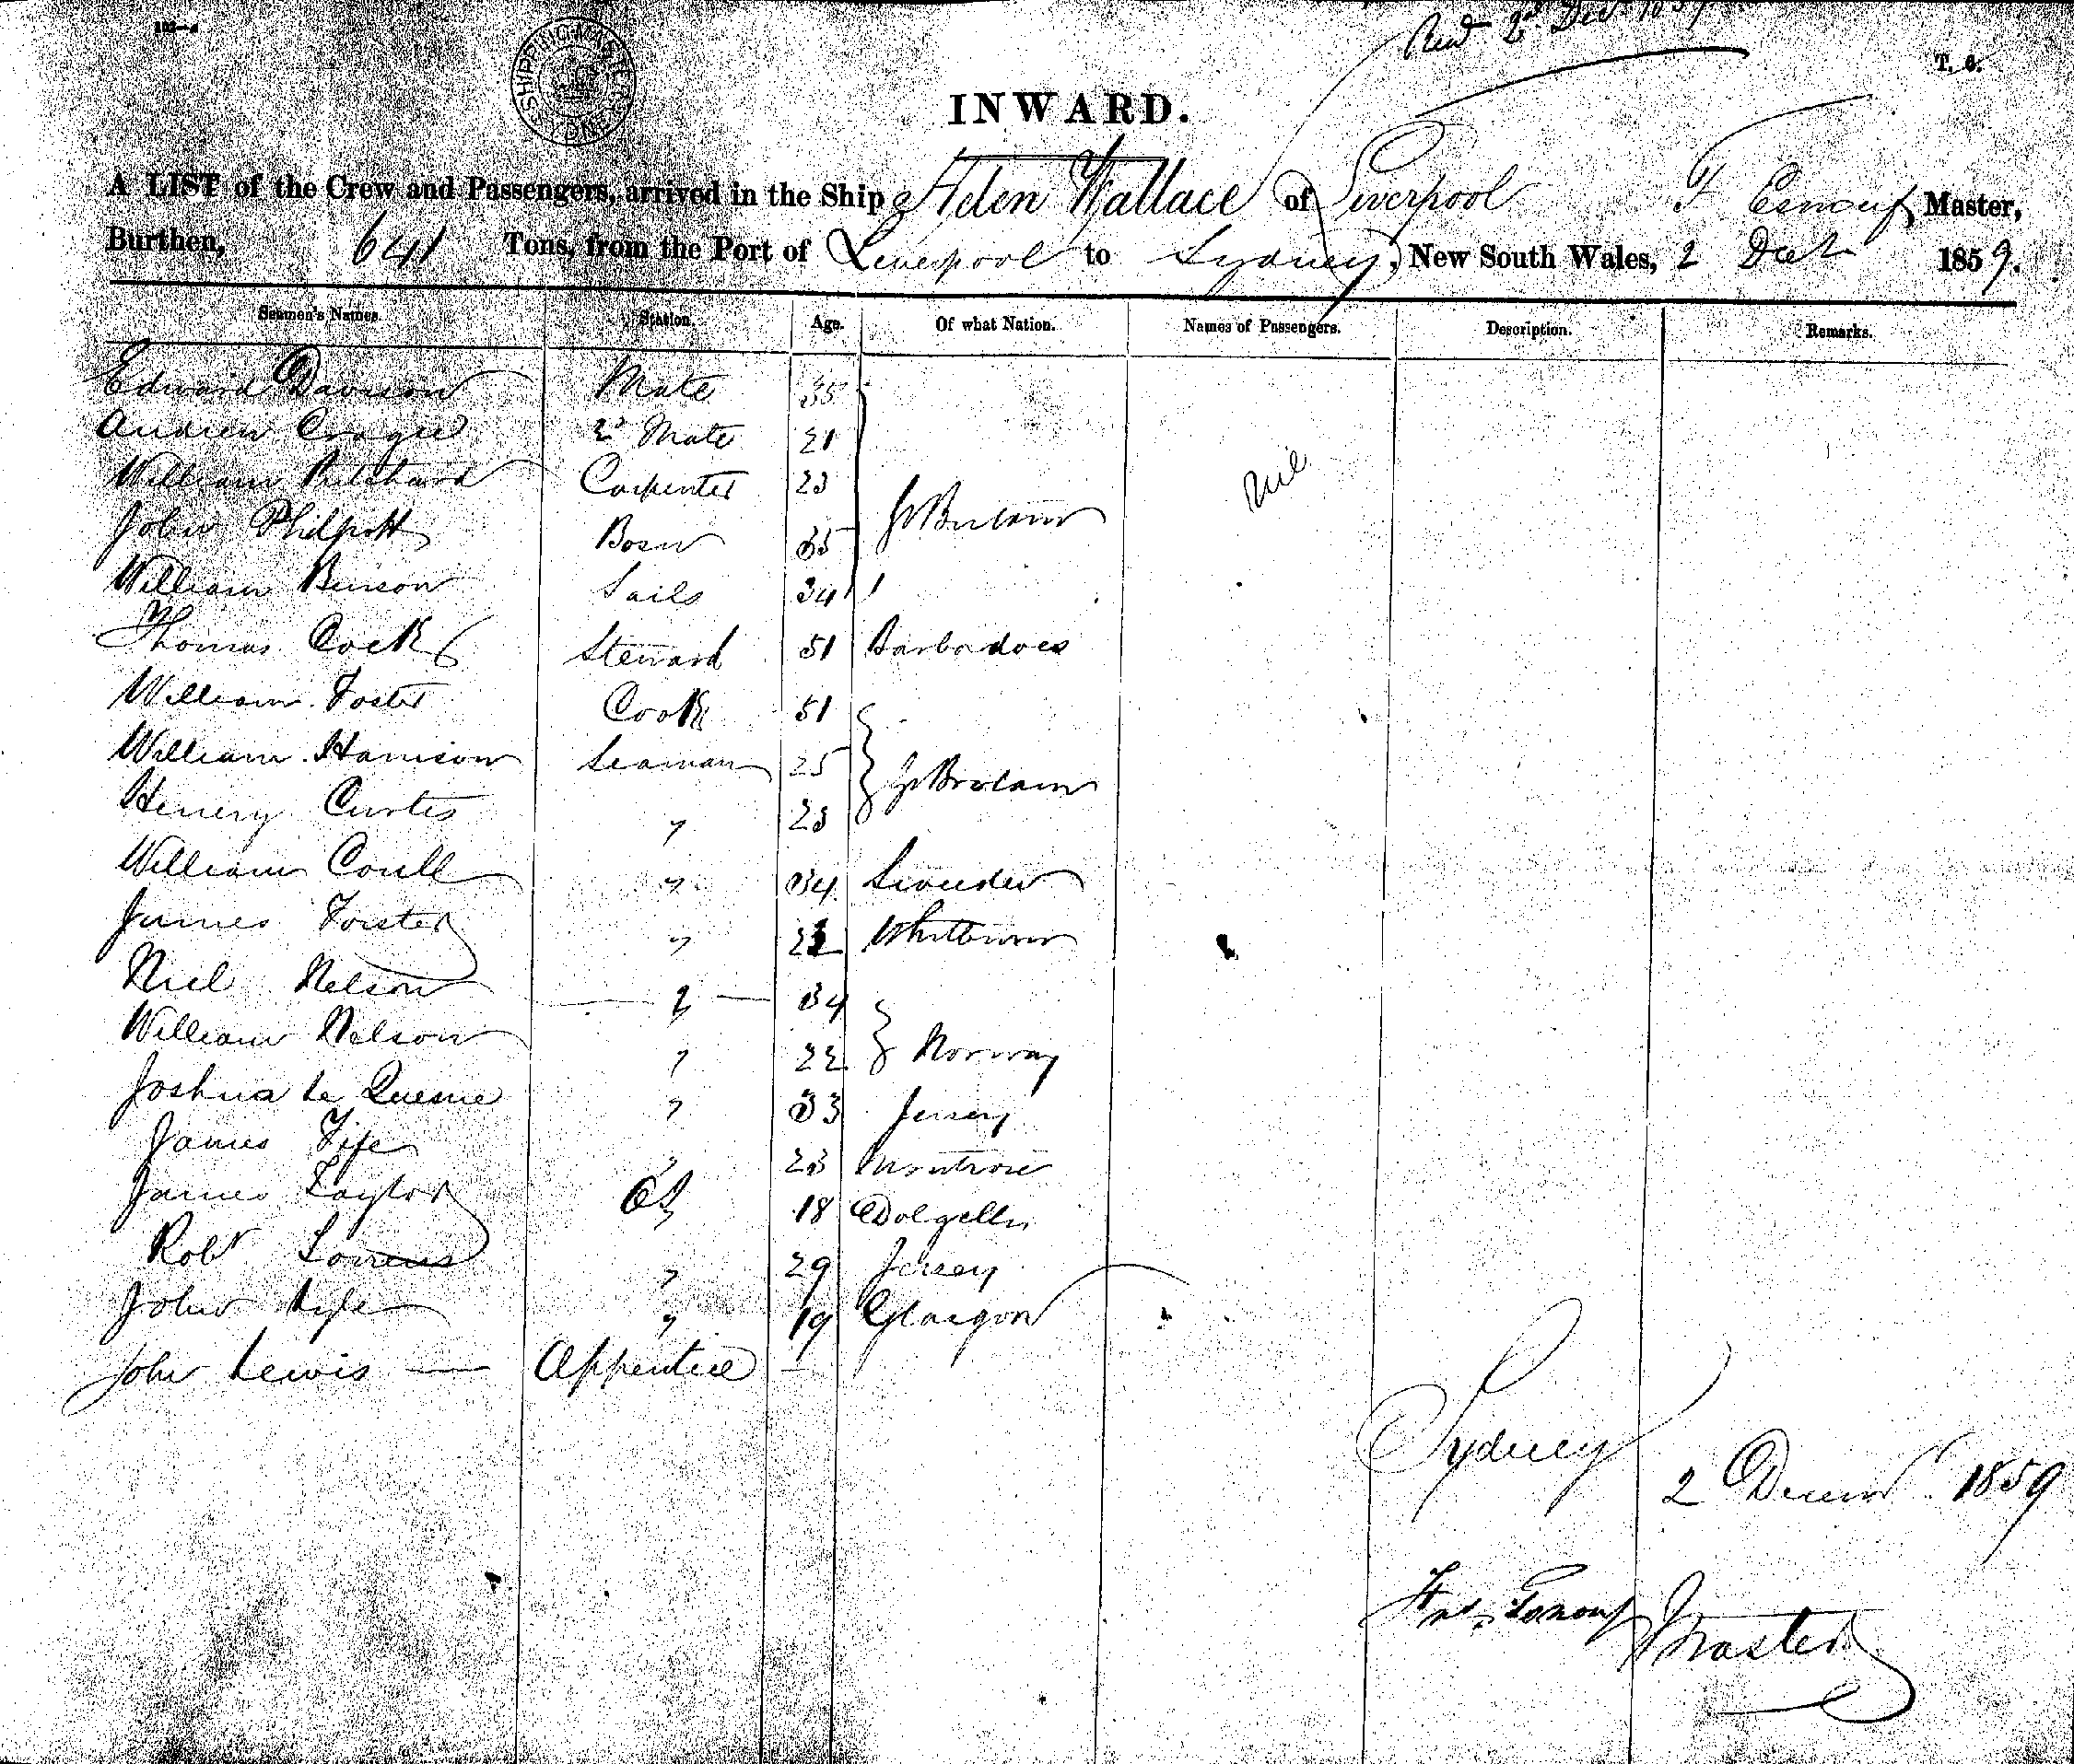 SHIPPING MASTERS SYDNEY
Recd 2nd Decr 1859
T. 6.
INWARD.
A LIST of the Crew and Passengers, arrived in the Ship Helen Wallace of Liverpool F Master,
Burthen, 641 Tons, from the Port of Liverpool to Sydney, New South Wales, 2 Dect 1859.
Seamen's Names. Station. Age. Of what Nation. Names of Passengers. Description. Remarks.
Edward Davison Mate 35
Andrew Cragie 2d Mate 21
William Pritchard Carpenter 23 Nil
John Philpott Bosn 35 Gt Britain
William Benson Sails 34 "
Thomas Cock Steward 51 Barbadoes
William Foster Cook 51
William Harrison Seaman 25 Gt Britain
Henery Curtis " 23
William Coull " 34
James Forster "
Niel Nelson " 34
William Nelson " 22 Norway
Joshua Le Quesne " 33 Jersey
James Fife " 23 Montrose
James Taylor OS 18 Dolgelly
Robt " 29 Jersey
John Fyfe " 19 Glasgow
John Lewis — Apprentice —
Sydney
2 Decemr 1859
Fns. Master